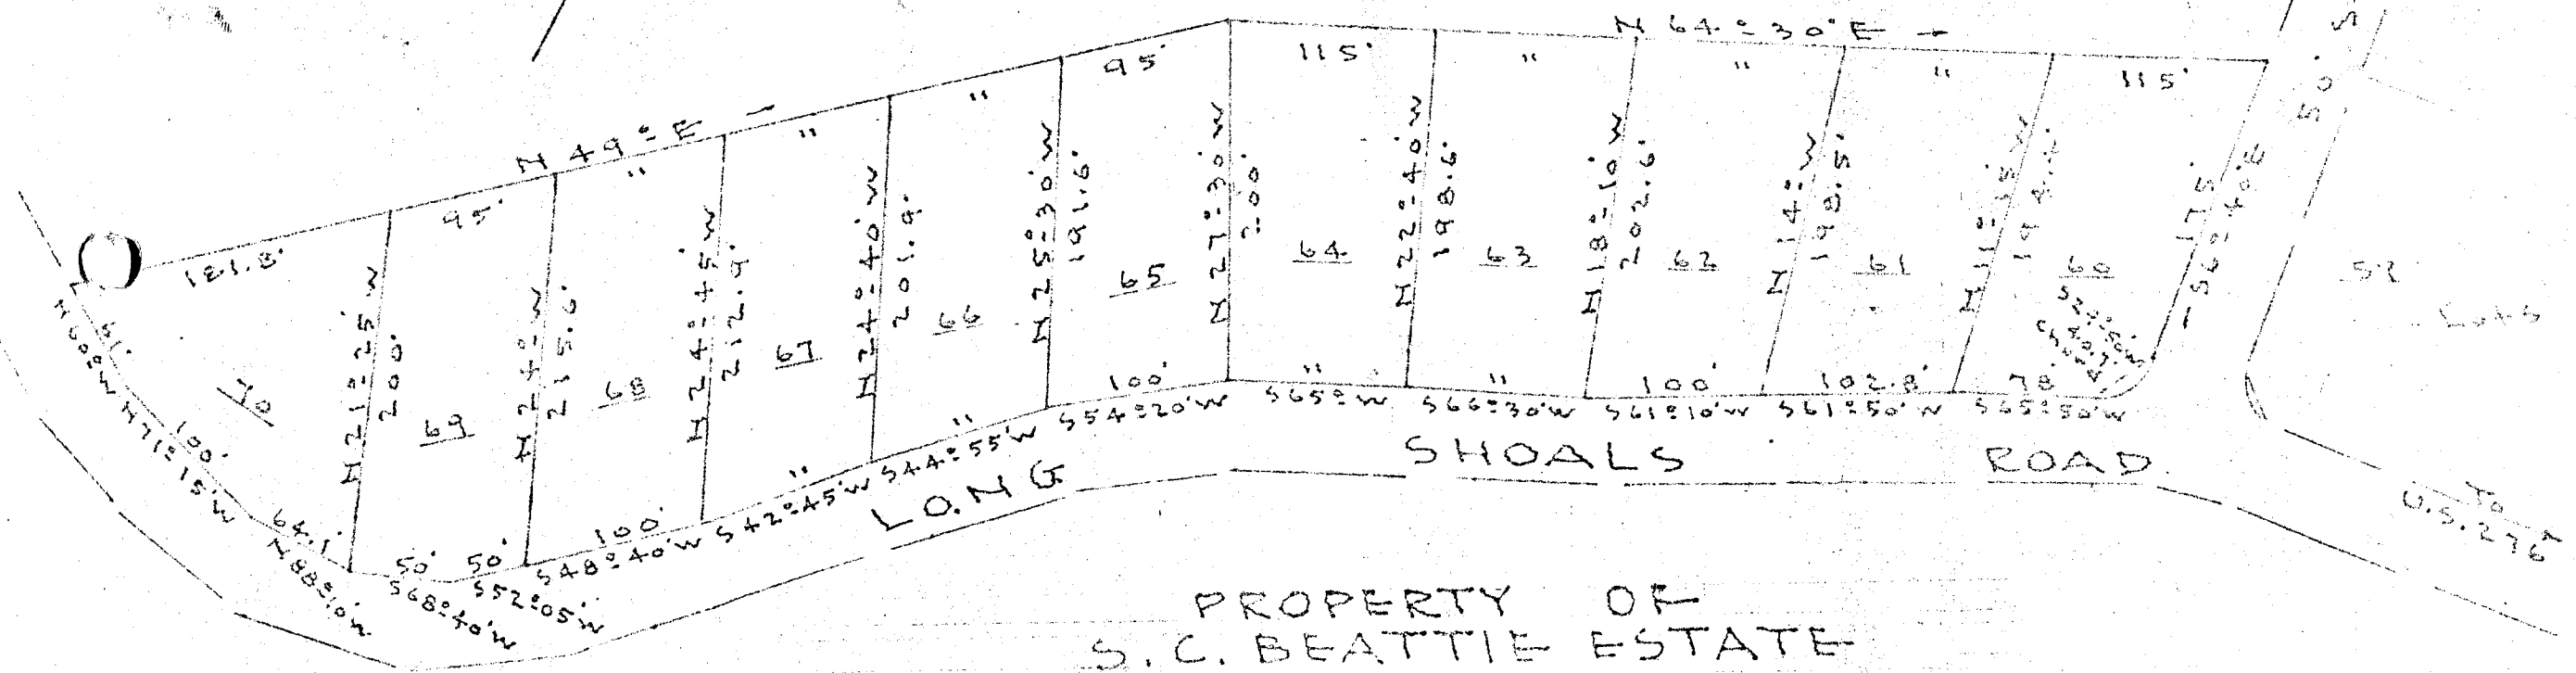 N 64° 30' E -
115' " " " 115'
N 49° E -
181.8' 95' " " " 95'
N 21° 25' W
200'
N 24° W
215.6'
N 24° 45' W
212.9'
N 24° 40' W
201.9'
N 25° 30' W
191.6'
N 27° 30' W
200'
N 22° 40' W
198.6'
N 18° 10' W
202.6'
N 14° W
198.5'
N 11° 15' W
194.4'
175'
70
69
68
67
66
65
64
63
62
61
60
Lots
N 60° W
100'
N 71° 15' W
64.1'
N 88° 10' W
50' 50' 100' " " 100' " " 100' 102.8' 78'
S 68° 40' W
S 52° 05' W
S 48° 40' W
S 42° 45' W
S 44° 55' W
S 54° 20' W
S 65° W
S 66° 30' W
S 61° 10' W
S 61° 50' W
S 65° 50' W
LONG SHOALS ROAD
To
U.S. 276
PROPERTY OF
S. C. BEATTIE ESTATE